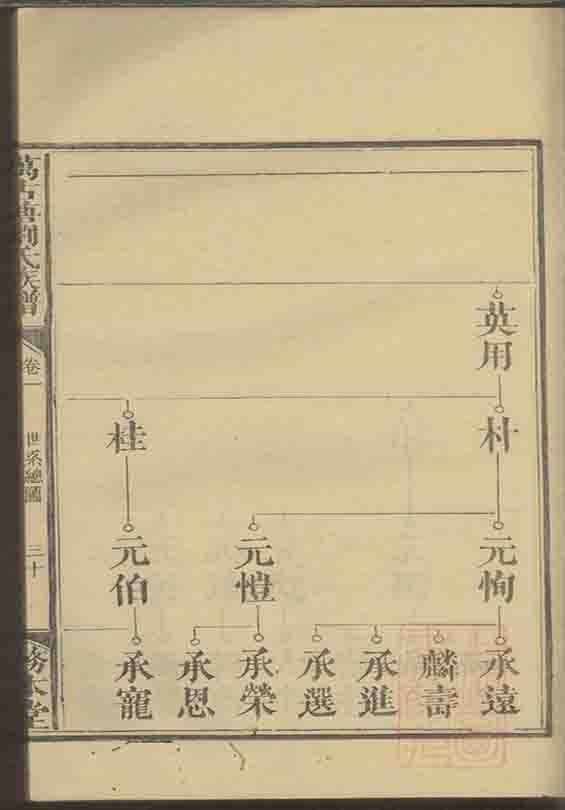 英用
朴
桂
元恂
元愷
元伯
承遠
麟壽
承進
承選
承榮
承恩
承寵
劉氏族譜
卷一
世系總圖
三十
務本堂